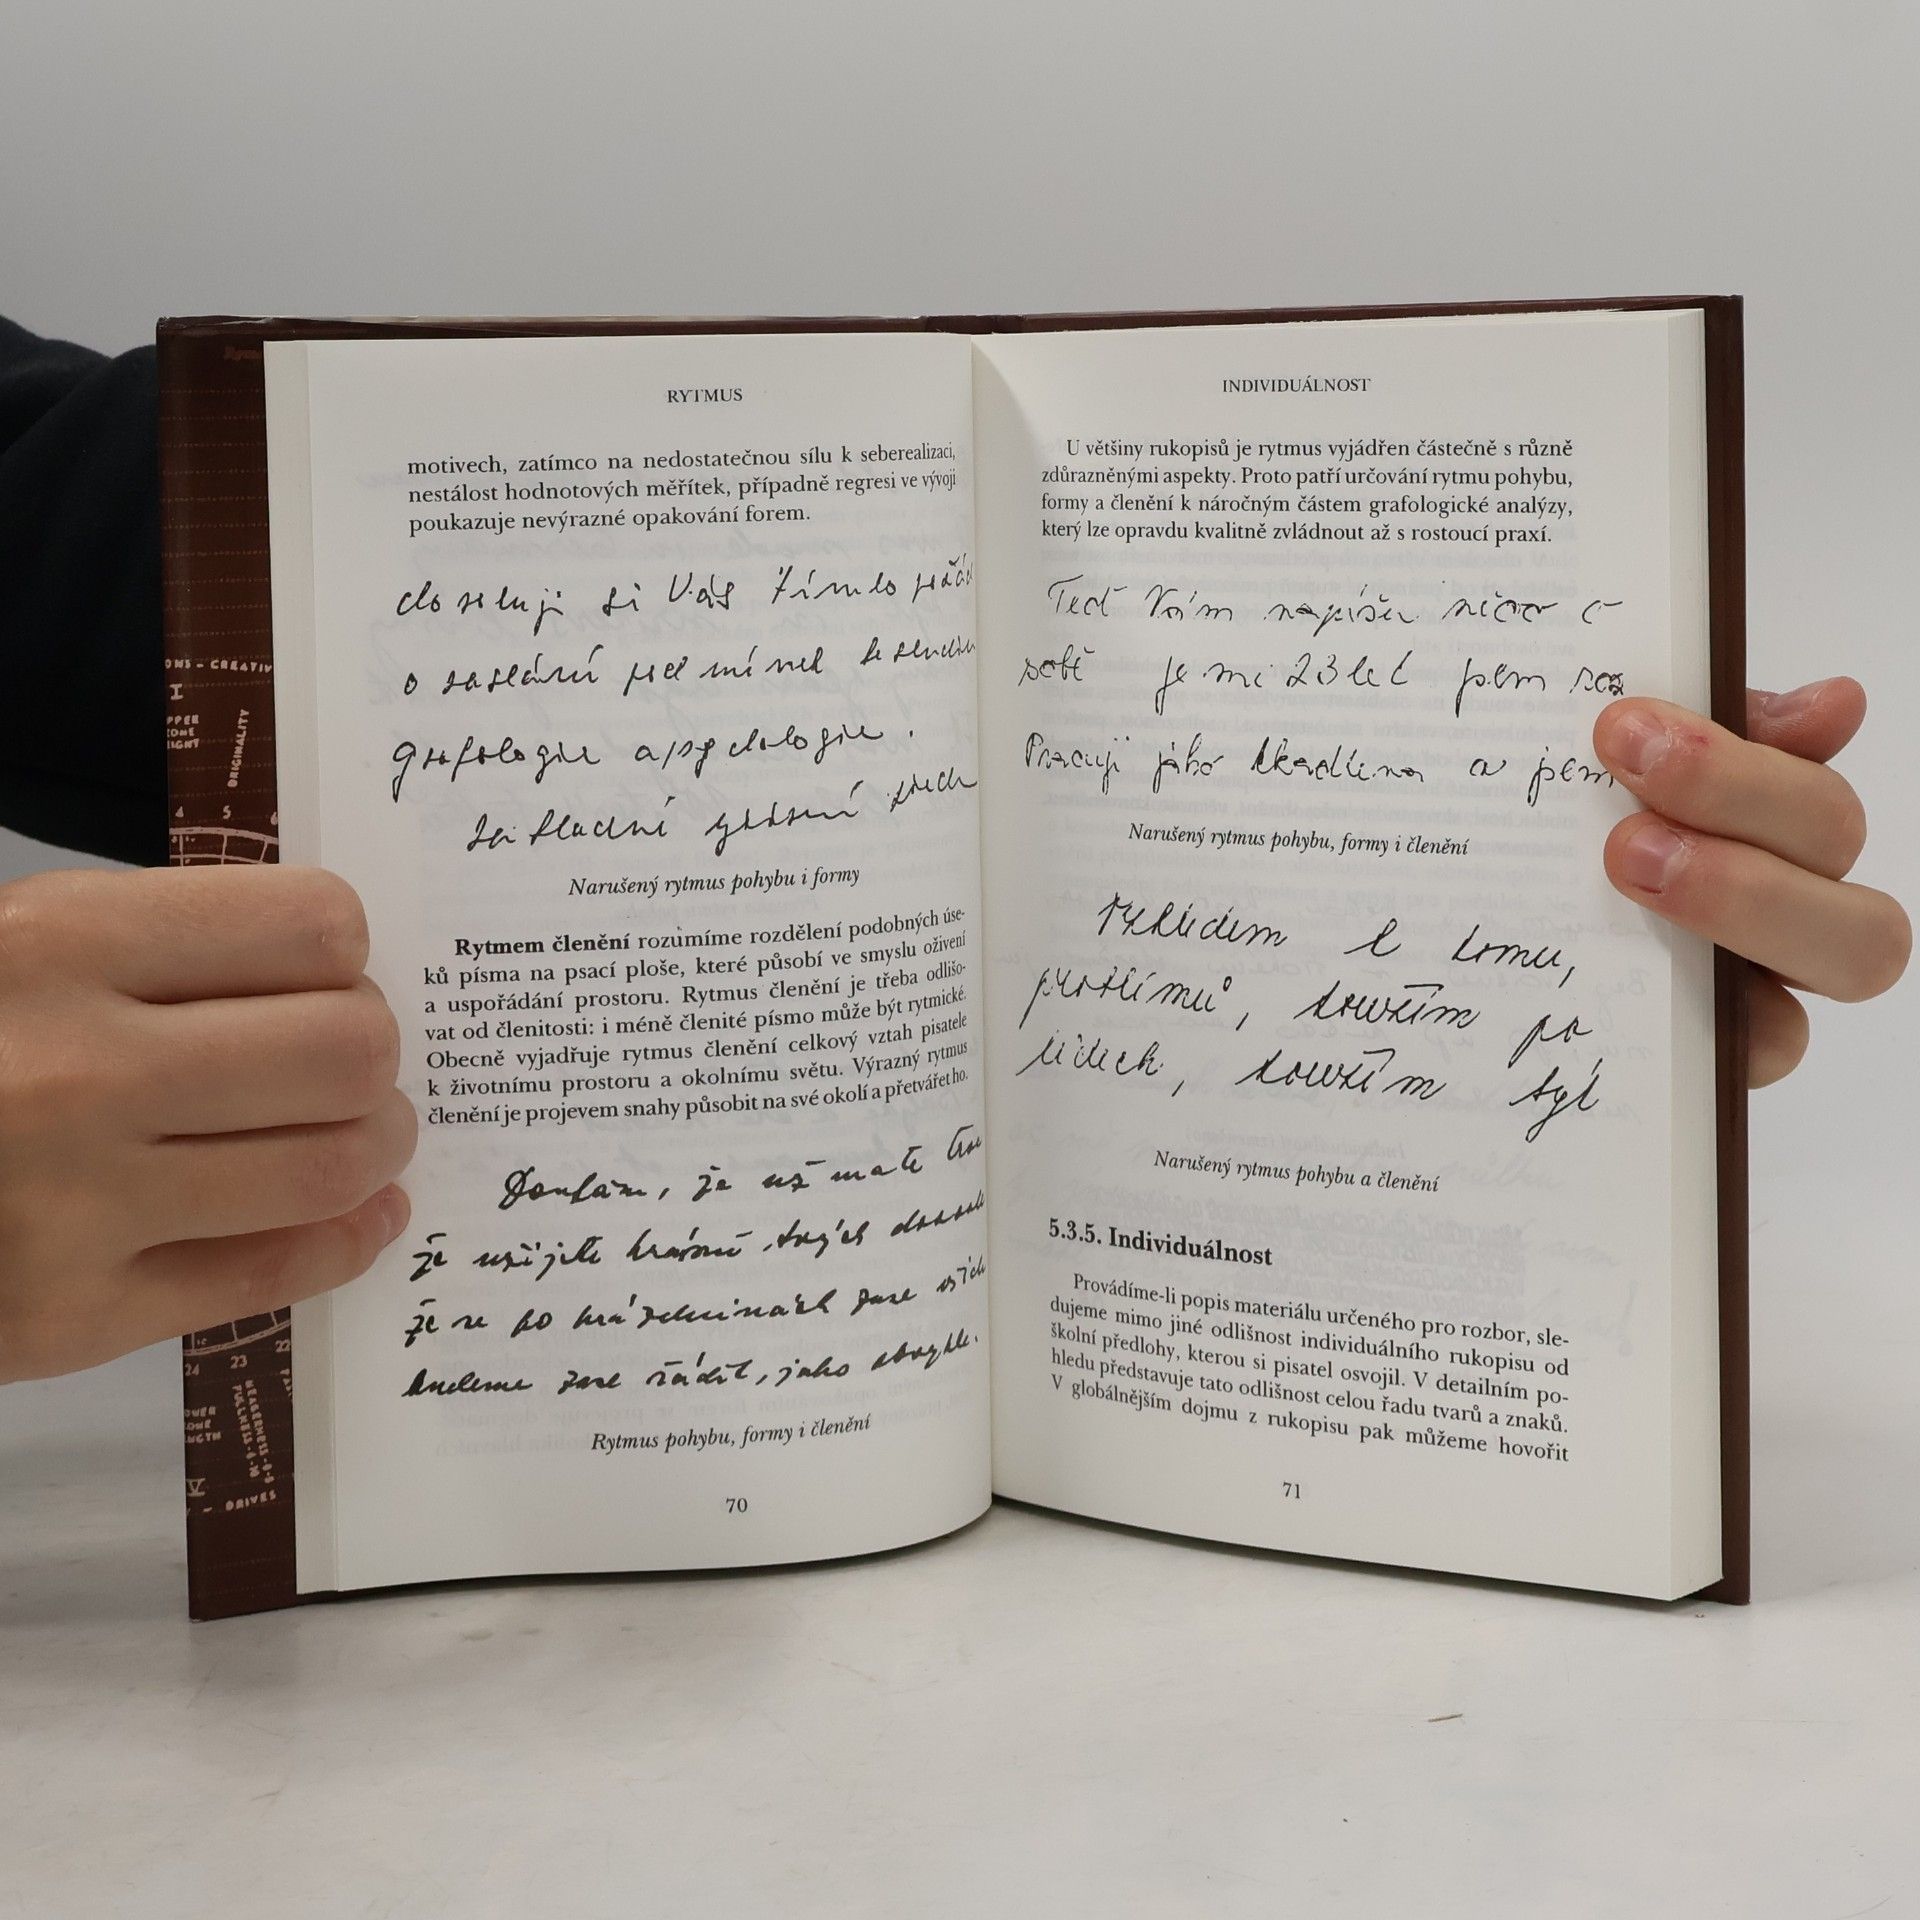 ONS - CREATIV
I
PPER
ZONE
EIGHT
ORIGINALITY
4 5 6
24 23 22
OWER
ZONE
NGTH
V
- DRIVES
RYTMUS
motivech, zatímco na nedostatečnou sílu k seberealizaci,
nestálost hodnotových měřítek, případně regresi ve vývoji
poukazuje nevýrazné opakování forem.
si Vás tímto
o zaslání
grafologie a psychologie.
Základní
Narušený rytmus pohybu i formy
Rytmem členění rozumíme rozdělení podobných úse-
ků písma na psací ploše, které působí ve smyslu oživení
a uspořádání prostoru. Rytmus členění je třeba odlišo-
vat od členitosti: i méně členité písmo může být rytmické.
Obecně vyjadřuje rytmus členění celkový vztah pisatele
k životnímu prostoru a okolnímu světu. Výrazný rytmus
členění je projevem snahy působit na své okolí a přetvářet ho.
Doufám, že už máte
že užijete krásně
že se po prázdninách zase
budeme zase řádit, jako obvykle.
Rytmus pohybu, formy i členění
70
INDIVIDUÁLNOST
U většiny rukopisů je rytmus vyjádřen částečně s různě
zdůrazněnými aspekty. Proto patří určování rytmu pohybu,
formy a členění k náročným částem grafologické analýzy,
který lze opravdu kvalitně zvládnout až s rostoucí praxí.
Teď Vám napíšu něco o
sobě je mi 23 let jsem
Pracuji jako a jsem
Narušený rytmus pohybu, formy i členění
Vzhledem k tomu,
toužím po
lidech, toužím být
Narušený rytmus pohybu a členění
5.3.5. Individuálnost
Provádíme-li popis materiálu určeného pro rozbor, sle-
dujeme mimo jiné odlišnost individuálního rukopisu od
školní předlohy, kterou si pisatel osvojil. V detailním po-
hledu představuje tato odlišnost celou řadu tvarů a znaků.
V globálnějším dojmu z rukopisu pak můžeme hovořit
71